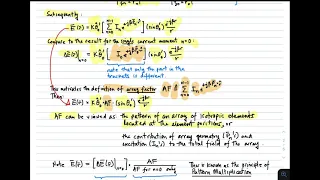 Subsequently:
E(r) = Kθ̂₀' [ Σ Iₙ e^{+jβr̂·r̄ₙ'} ] (sinθ₀') e^{-jβr}/r
Compute to the result for the single current moment n=0:
E(r)|ₙ₌₀ = Kθ̂₀' [ I₀ e^{+jβr̂·r̄₀'} ] (sinθ₀') e^{-jβr}/r
note that only the part in the
brackets is different.
This motivates the definition of array factor AF ≜ Σ Iₙ e^{+jβr̂·r̄ₙ'}
Then
E(r) = Kθ̂₀' · AF · (sinθ₀') e^{-jβr}/r
AF can be viewed as the pattern of an array of isotropic elements
located at the element positions, or
the contribution of array geometry (r̄ₙ') and
excitation (Iₙ) to the total field of the array.
Note E(r) = [ E(r)|ₙ₌₀ ] · AF / AF for n=0 only
This is known as the principle of
Pattern Multiplication